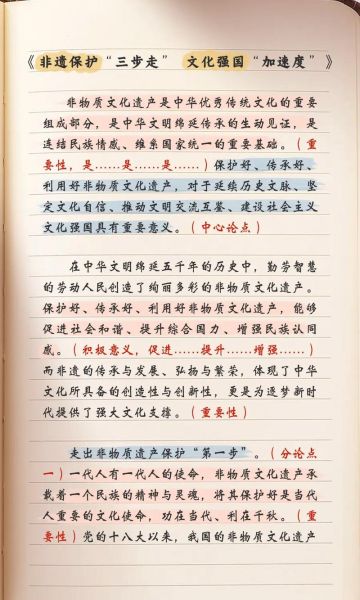 《非遗保护“三步走” 文化强国“加速度”》
非物质文化遗产是中华优秀传统文化的重要
组成部分，是中华文明绵延传承的生动见证，是
连结民族情感、维系国家统一的重要基础。（重
要性，是……是……是……）保护好、传承好、
利用好非物质文化遗产，对于延续历史文脉、坚
定文化自信、推动文明交流互鉴、建设社会主义
文化强国具有重要意义。（中心论点）
在中华文明绵延五千年的历史中，勤劳智慧
的劳动人民创造了绚丽多彩的非物质文化遗产。
保护好、传承好、利用好非物质文化遗产，能够
促进社会和谐、提升综合国力、增强民族认同
感。（积极意义，促进……提升……增强……）
而非遗的传承与发展、弘扬与繁荣，体现了中华
文化所具备的创造性与创新性，更是为逐梦新时
代提供了强大文化支撑。（重要性）
走出非物质遗产保护“第一步”。（分论点
一）一代人有一代人的使命，非物质文化遗产承
载着一个民族的精神与灵魂，将其保护好是当代
人重要的文化使命，功在当代、利在千秋。（重
要性）党的十八大以来，我国的非物质文化遗产